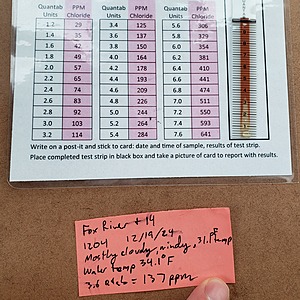 Quantab Units PPM Chloride Quantab Units PPM Chloride Quantab Units PPM Chloride
1.2 29 3.4 125 5.6 306
1.4 35 3.6 137 5.8 329
1.6 42 3.8 150 6.0 354
1.8 49 4.0 164 6.2 381
2.0 57 4.2 178 6.4 410
2.2 65 4.4 193 6.6 441
2.4 74 4.6 209 6.8 474
2.6 83 4.8 226 7.0 511
2.8 92 5.0 244 7.2 550
3.0 103 5.2 264 7.4 593
3.2 114 5.4 284 7.6 641
Write on a post-it and stick to card: date and time of sample, results of test strip.
Place completed test strip in black box and take a picture of card to report with results.
Fox River + 14
1204 12/19/24
Mostly cloudy, windy, 31.1°F temp
Water temp 34.1°F
3.6 = 137 ppm